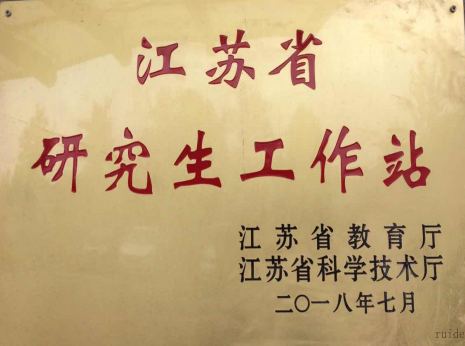 江苏省
研究生工作站
江苏省教育厅
江苏省科学技术厅
二〇一八年七月
ruide